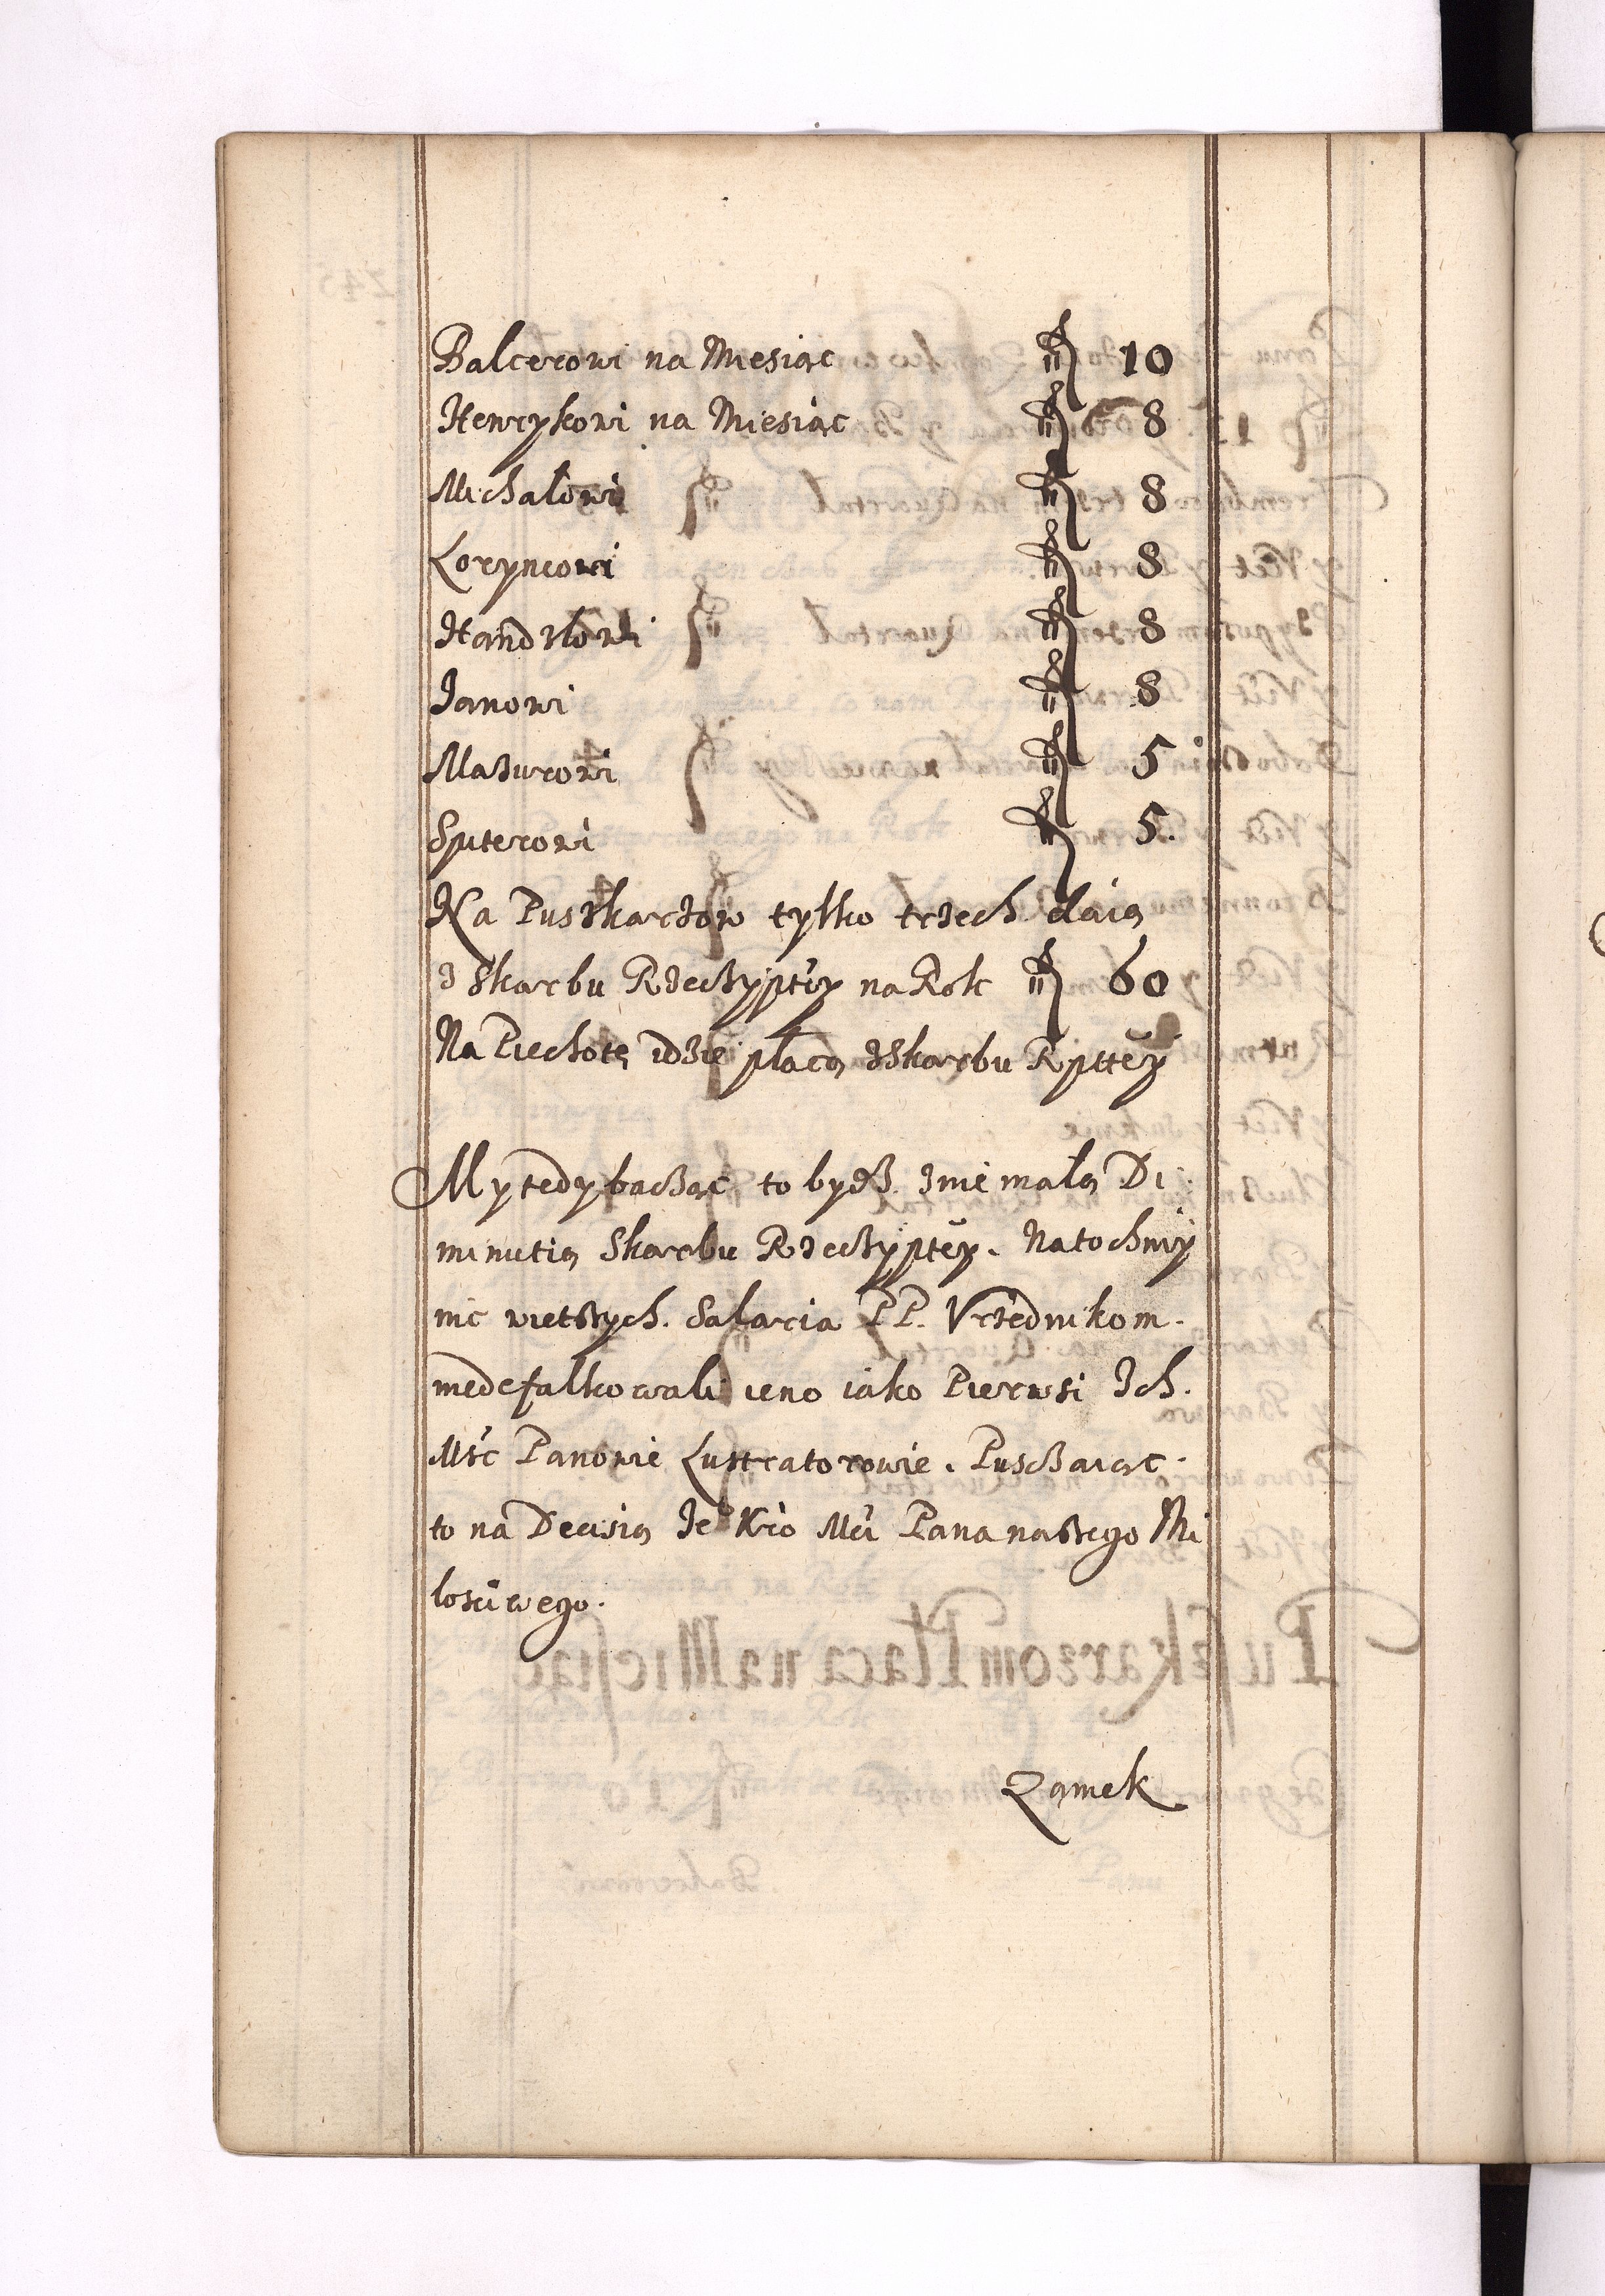 Balcerowi na Miesiąc fl 10
Henrykowi na Miesiąc fl 8
Michałowi fl 8
Loryncowi fl 8
Handzlowi fl 8
Janowi fl 8
Mazurowi fl 5
fl 5.
Na Puszkarzow tylko trzech daią
z Skarbu Rzeczyptey na Rok fl 60
Na Piechotę idzie płacą z Skarbu Rpttey
My tedy bacząc to bydź z nie małą Di
minutią Skarbu Rzeczyptey. Na tochmy
nic wietszych. Salaria PP. Vrzednikom.
niedefalkowali ieno iako Pierwsi Ich.
Mśc Panowie Lustratorowie. Pusczaiąc.
to na Decisią Je Kró Mci Pana naszego Mi
łosciwego.
Zamek